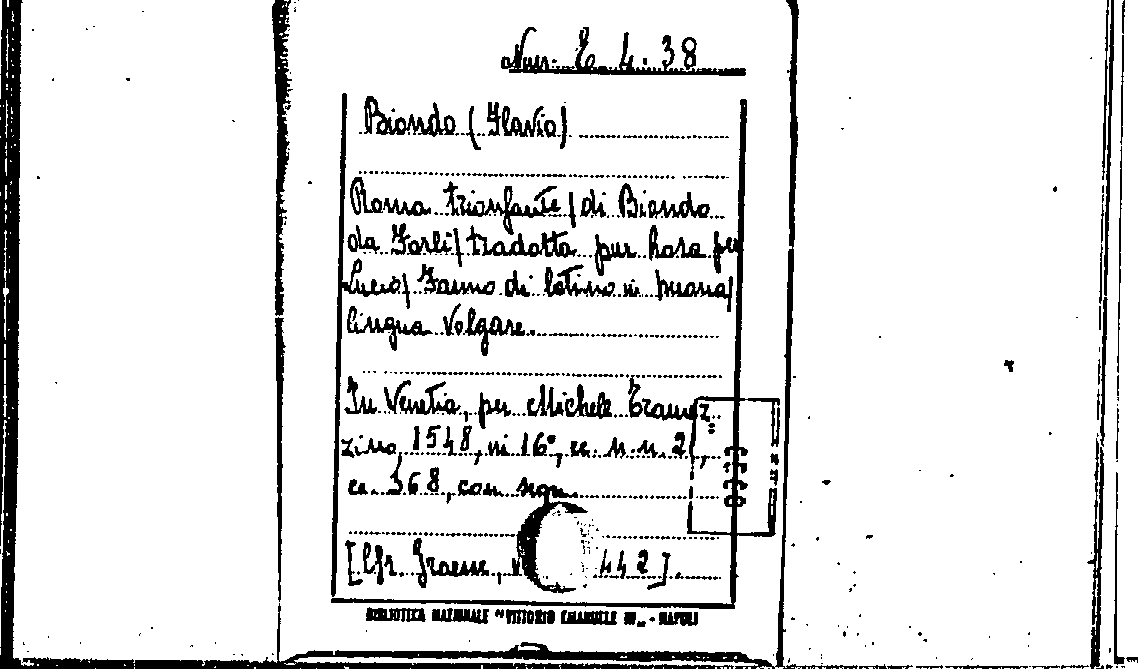 Nun. E. 4. 38
Biondo (Flavio)
Roma trionfante / di Biondo
da Forlì / tradotta pur hora per
Lucio / Fauno di latino in buona /
lingua Volgare.
In Venetia, per Michele Tramez
zino, 1548, in 16°, cc. n.n. 21,
cc. 368, con segn.
[Cfr. Graesse, 442].
BIBLIOTECA NAZIONALE "VITTORIO EMANUELE III" - NAPOLI